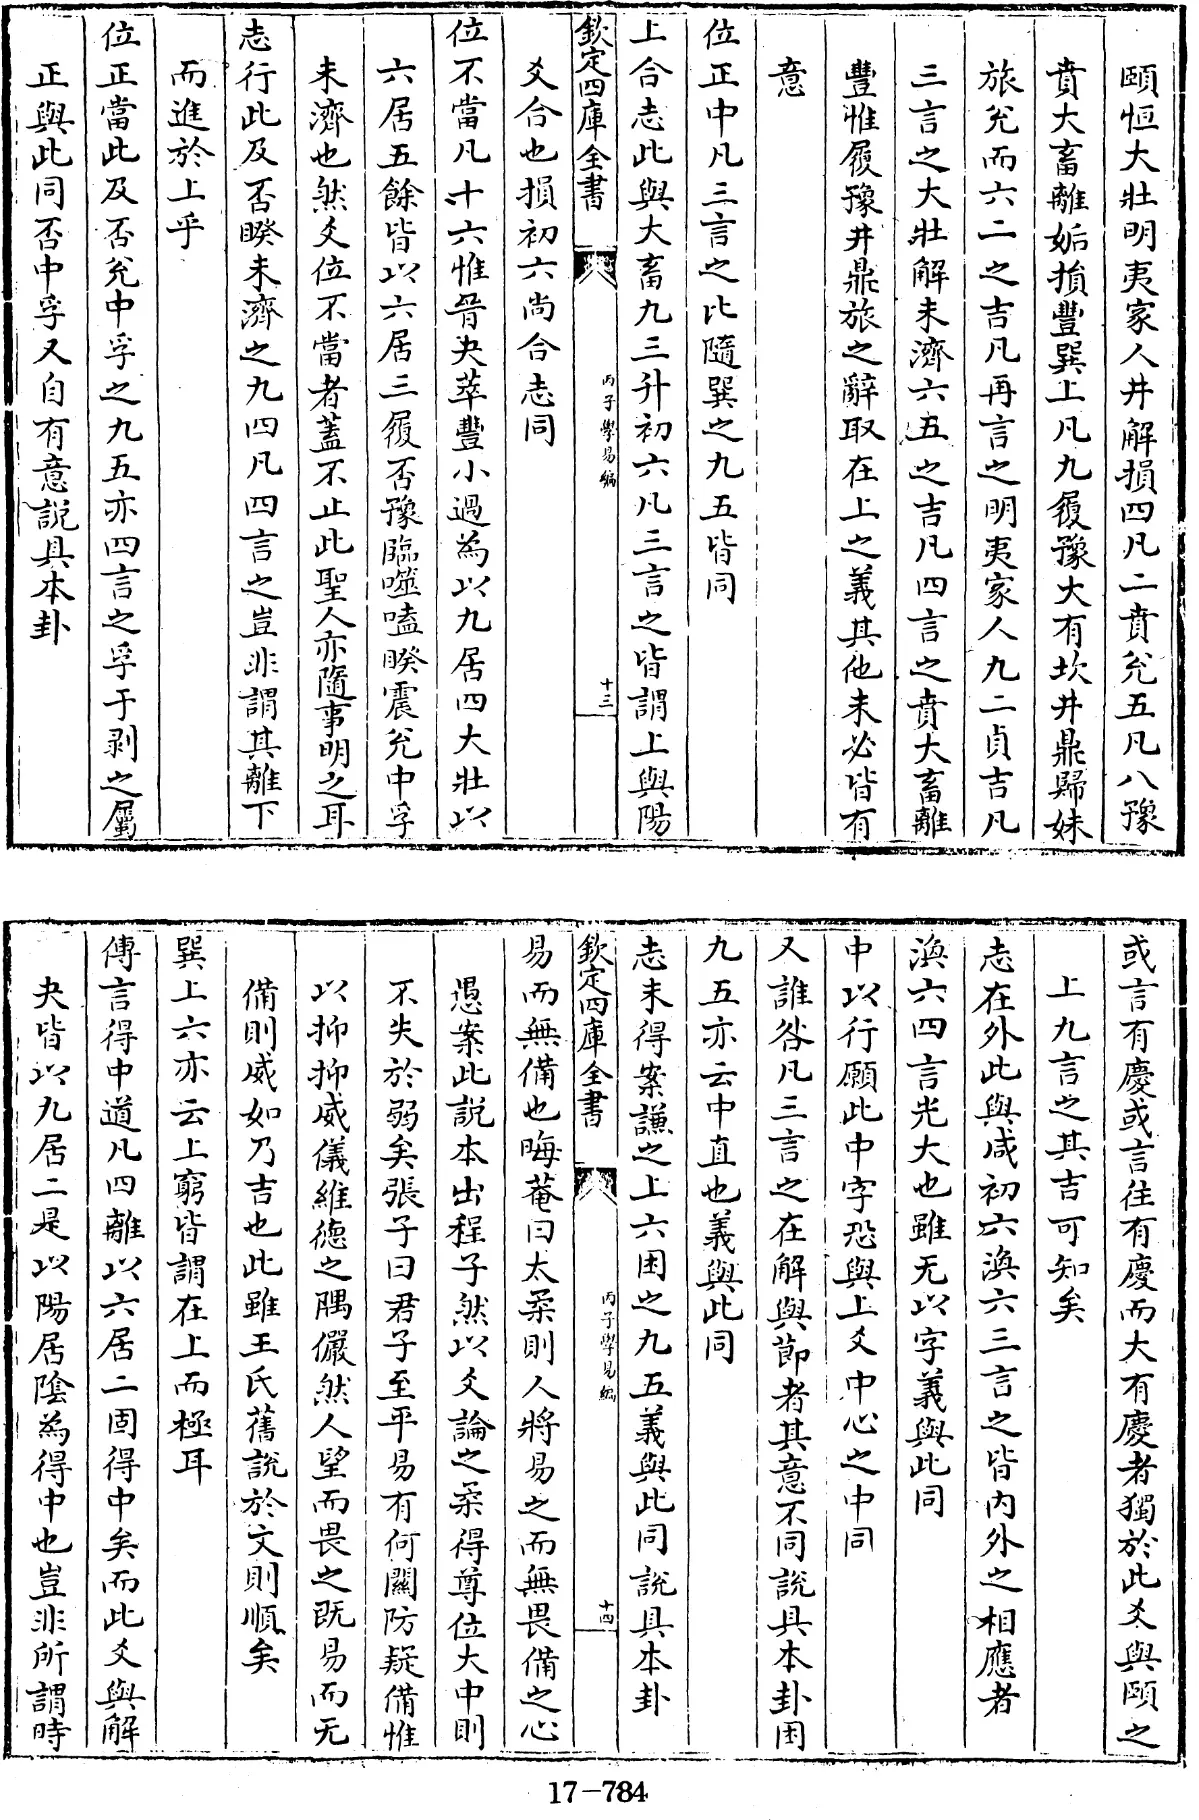 頤恒大壯明夷家人井解損四凡二賁兊五凡八豫
賁大畜離姤損豐巽上凡九履豫大有坎井鼎歸妹
旅兊而六二之吉凡再言之明夷家人九二貞吉凡
三言之大壯解未濟六五之吉凡四言之賁大畜離
豐惟履豫井鼎旅之辭取在上之義其他未必皆有
意
位正中凡三言之比隨巽之九五皆同
上合志此與大畜九三升初六凡三言之皆謂上與陽
欽定四庫全書
丙子學易編
十三
爻合也損初六尚合志同
位不當凡十六惟晉夬萃豐小過為以九居四大壯以
六居五餘皆以六居三履否豫臨噬嗑睽震兊中孚
未濟也然爻位不當者蓋不止此聖人亦隨事明之耳
志行此及否睽未濟之九四凡四言之豈非謂其離下
而進於上乎
位正當此及否兊中孚之九五亦四言之孚于剥之屬
正與此同否中孚又自有意說具本卦
或言有慶或言往有慶而大有慶者獨於此爻與頤之
上九言之其吉可知矣
志在外此與咸初六渙六三言之皆内外之相應者
渙六四言光大也雖无以字義與此同
中以行願此中字恐與上爻中心之中同
又誰咎凡三言之在解與節者其意不同說具本卦困
九五亦云中直也義與此同
志未得案謙之上六困之九五義與此同說具本卦
欽定四庫全書
丙子學易編
十四
易而無備也晦菴曰太柔則人將易之而無畏備之心
愚案此說本出程子然以爻論之柔得尊位大中則
不失於弱矣張子曰君子至平易有何關防疑備惟
以抑抑威儀維德之隅儼然人望而畏之既易而无
備則威如乃吉也此雖王氏舊說於文則順矣
巽上六亦云上窮皆謂在上而極耳
傳言得中道凡四離以六居二固得中矣而此爻與解
夬皆以九居二是以陽居陰為得中也豈非所謂時
17-784